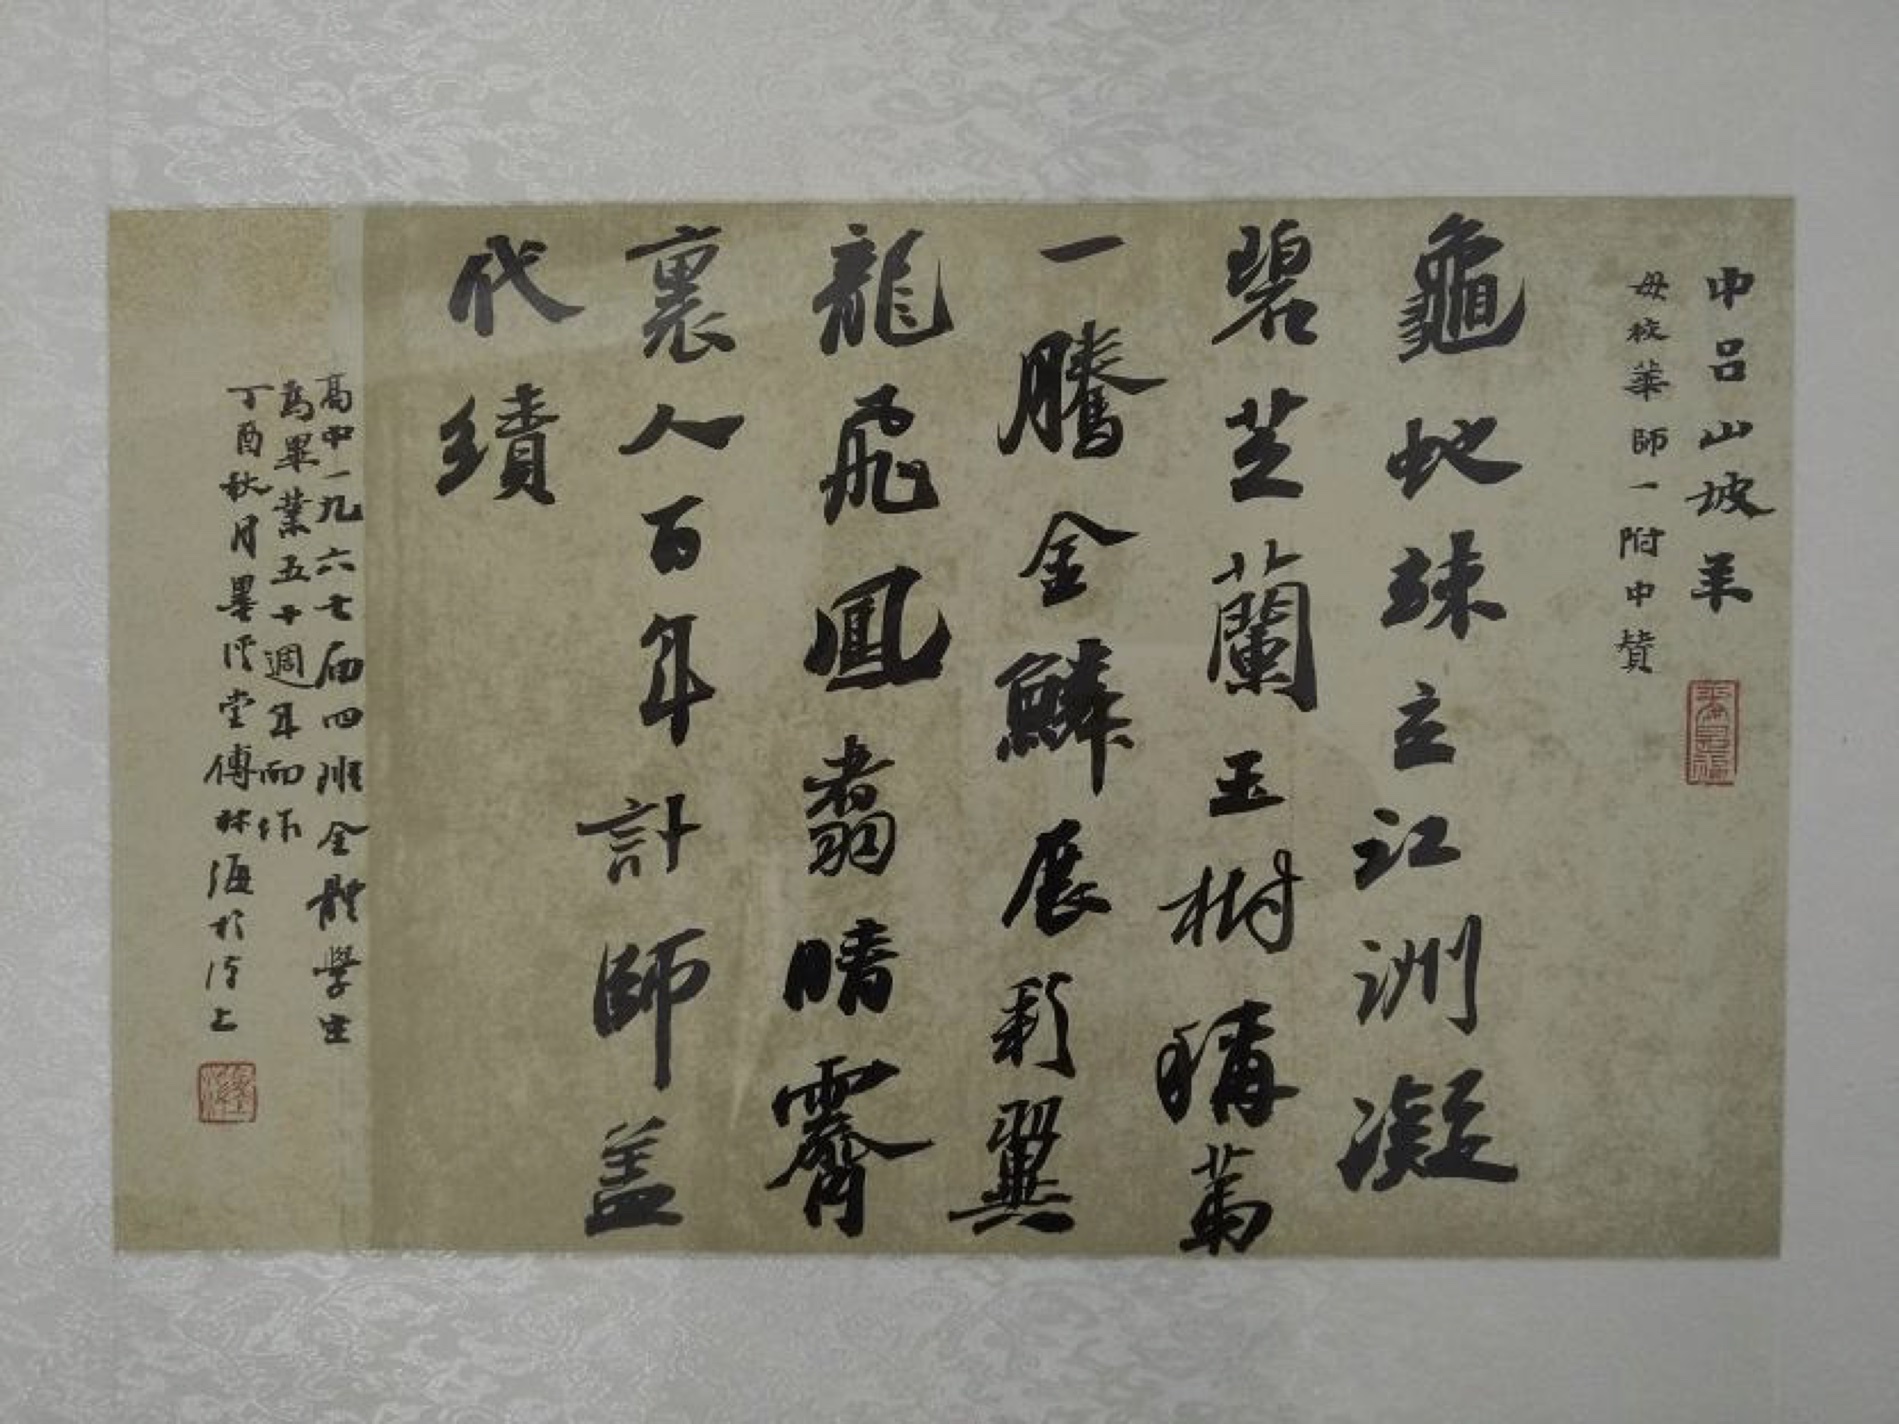 中呂山坡羊
母校華師一附中贊
龜地竦立江洲凝
碧芝蘭玉樹稱萬
一騰金鱗展彩翼
龍飛鳳翥晴霽
裏人百年計師蓋
代績
高中一九六七屆四班全體學生
為畢業五十週年而作
丁酉秋月墨堂傅林海於上